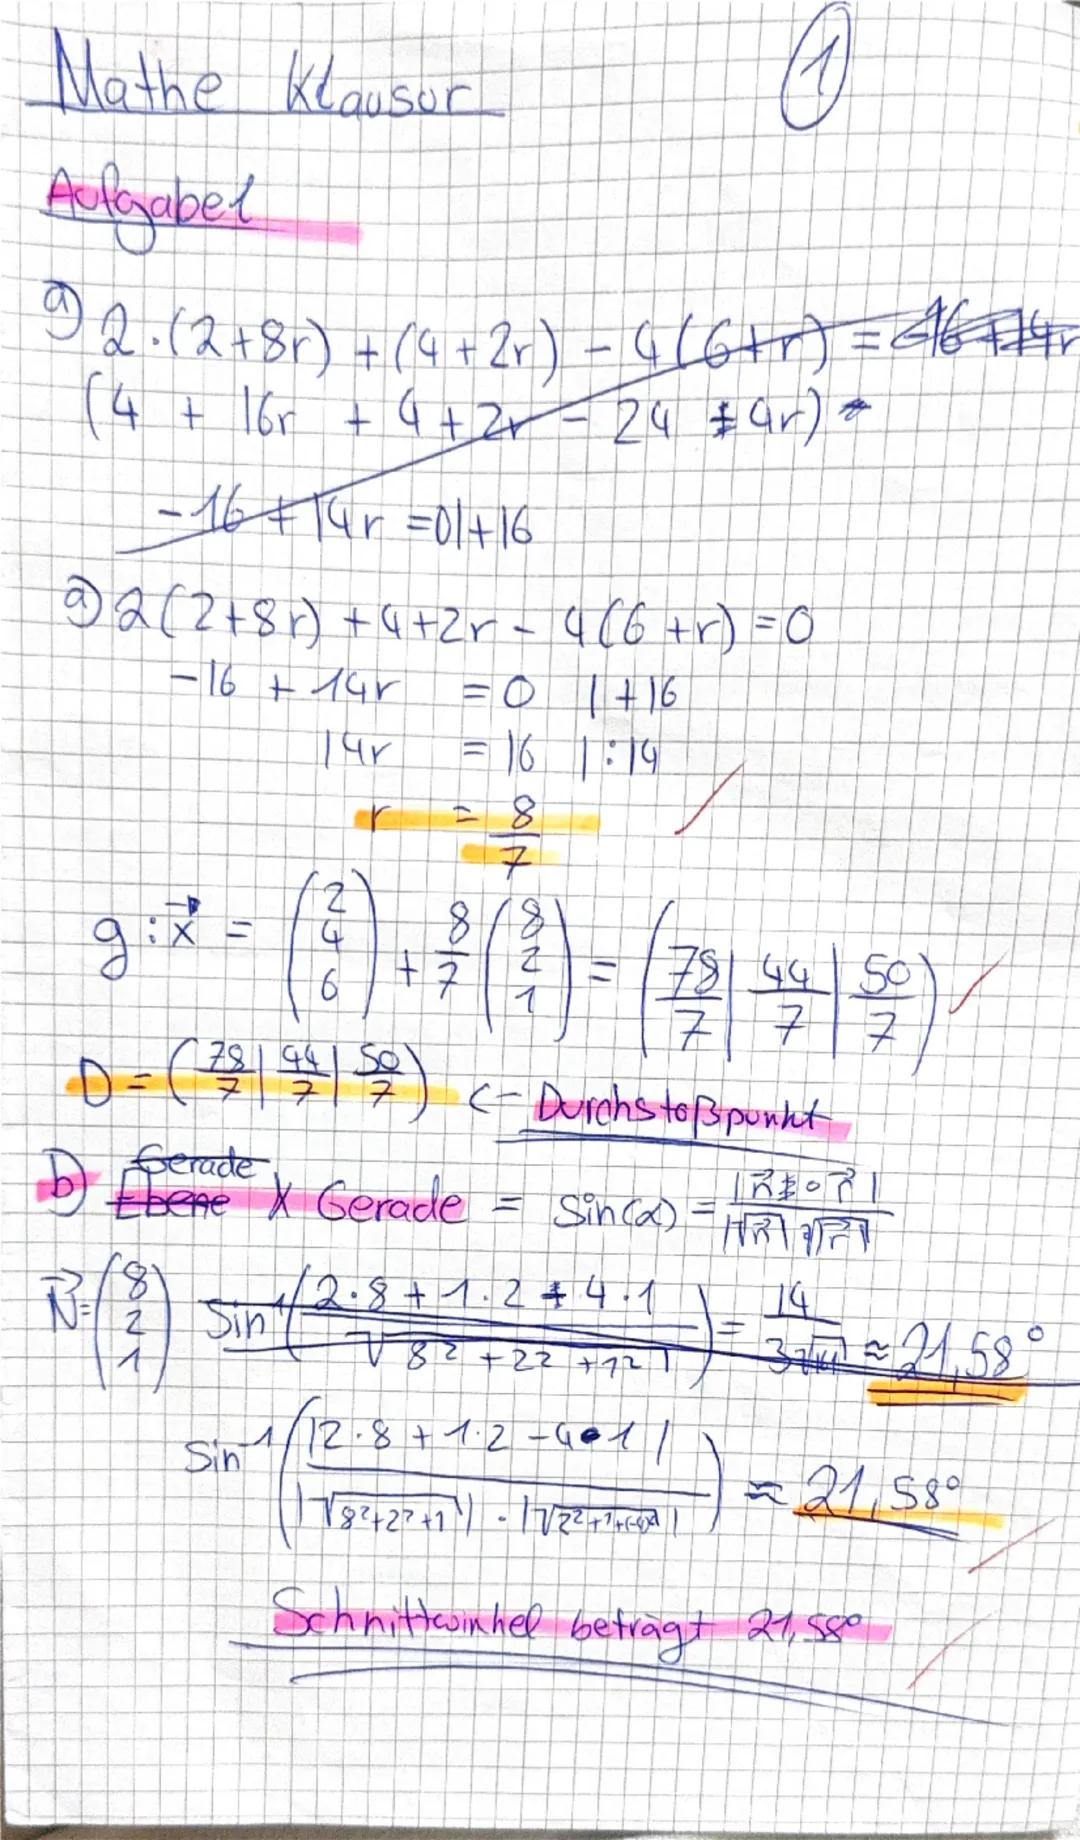 Mathe Klausur 1
Aufgabe 1
a) 2·(2+8r) + (4+2r) - 4(6+r) = -16+14r
(4 + 16r + 4+2r - 24 ± 4r)
-16 + 14r = 0 | +16
a) 2(2+8r) + 4+2r - 4(6+r) = 0
-16 + 14r = 0 | +16
14r = 16 | : 14
r = 8/7
g: x⃗ = (2 4 6) + 8/7 (8 2 1) = (78/7 | 44/7 | 50/7)
D = (78/7 | 44/7 | 50/7) <- Durchstoßpunkt
b) Gerade
Ebene X Gerade = sin(α) = |n⃗ ∘ r⃗| / |√n⃗| |√r⃗|
N⃗ = (8 2 1) Sin⁻¹ (2·8 + 1·2 + 4·1 / √8²+2²+1²) = 14 / 3√161 ≈ 21,58°
Sin⁻¹ (|2·8 + 1·2 - 4·1| / |√8²+2²+1| · |√2²+1+(-4)²|) ≈ 21,58°
Schnittwinkel beträgt 21,58°